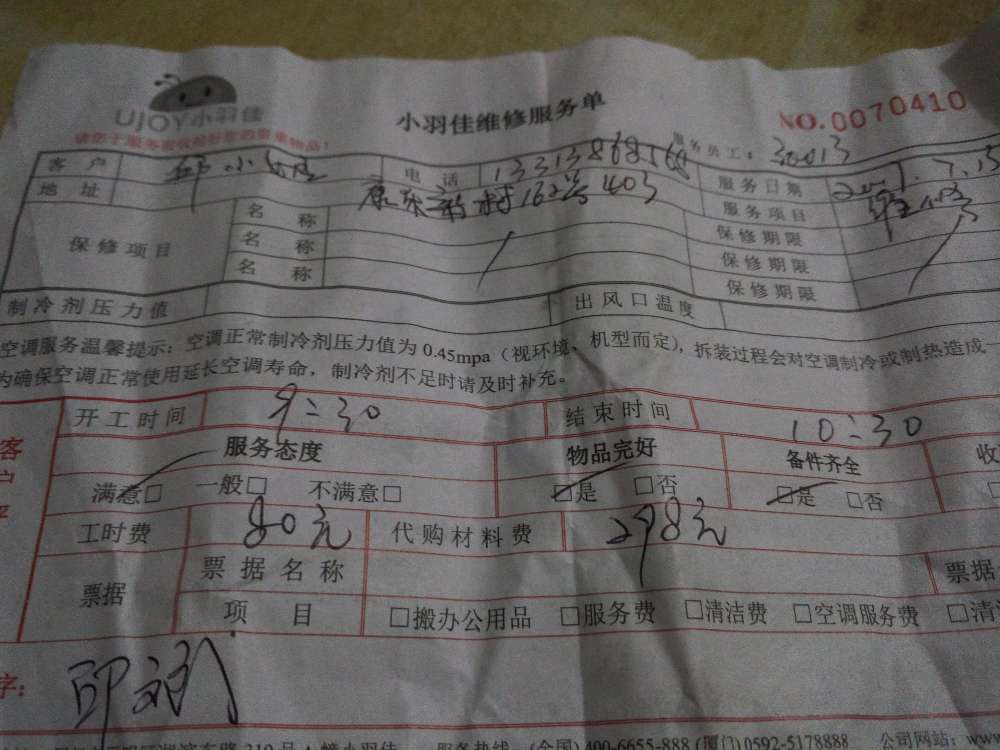 UJOY小羽佳
小羽佳维修服务单
NO.0070410
请您于服务前收拾好您的贵重物品！
服务员工：
客户 电话 服务日期
地址 康东新村162号403 服务项目
保修项目 名称 保修期限
名称 保修期限
名称 保修期限
制冷剂压力值 出风口温度
空调服务温馨提示：空调正常制冷剂压力值为0.45mpa（视环境、机型而定），拆装过程会对空调制冷或制热造成一
为确保空调正常使用延长空调寿命，制冷剂不足时请及时补充。
开工时间 9:30 结束时间 10:30
服务态度 物品完好 备件齐全 收
满意□ 一般□ 不满意□ □是 □否 □是 □否
工时费 80元 代购材料费 298元
票据 票据名称 票据
项目 □搬办公用品 □服务费 □清洁费 □空调服务费 □清
字：
310号 小羽佳 服务热线：(全国)400-6655-888 (厦门)0592-5178888 公司网站：www